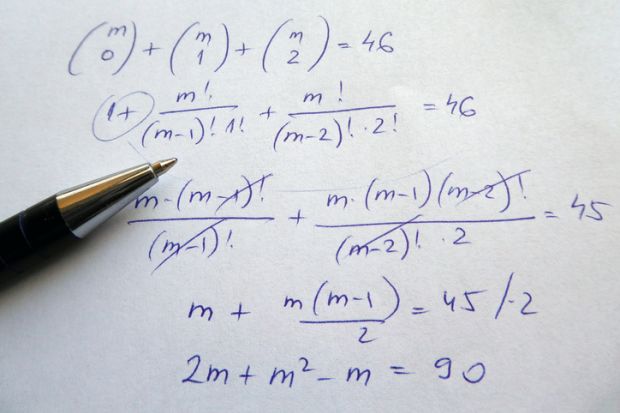 (m 0) + (m 1) + (m 2) = 46
1 + m! / (m-1)! 1! + m! / (m-2)! · 2! = 46
m · (m-1)! / (m-1)! + m · (m-1) (m-2)! / (m-2)! · 2 = 45
m + m(m-1) / 2 = 45 /·2
2m + m² - m = 90